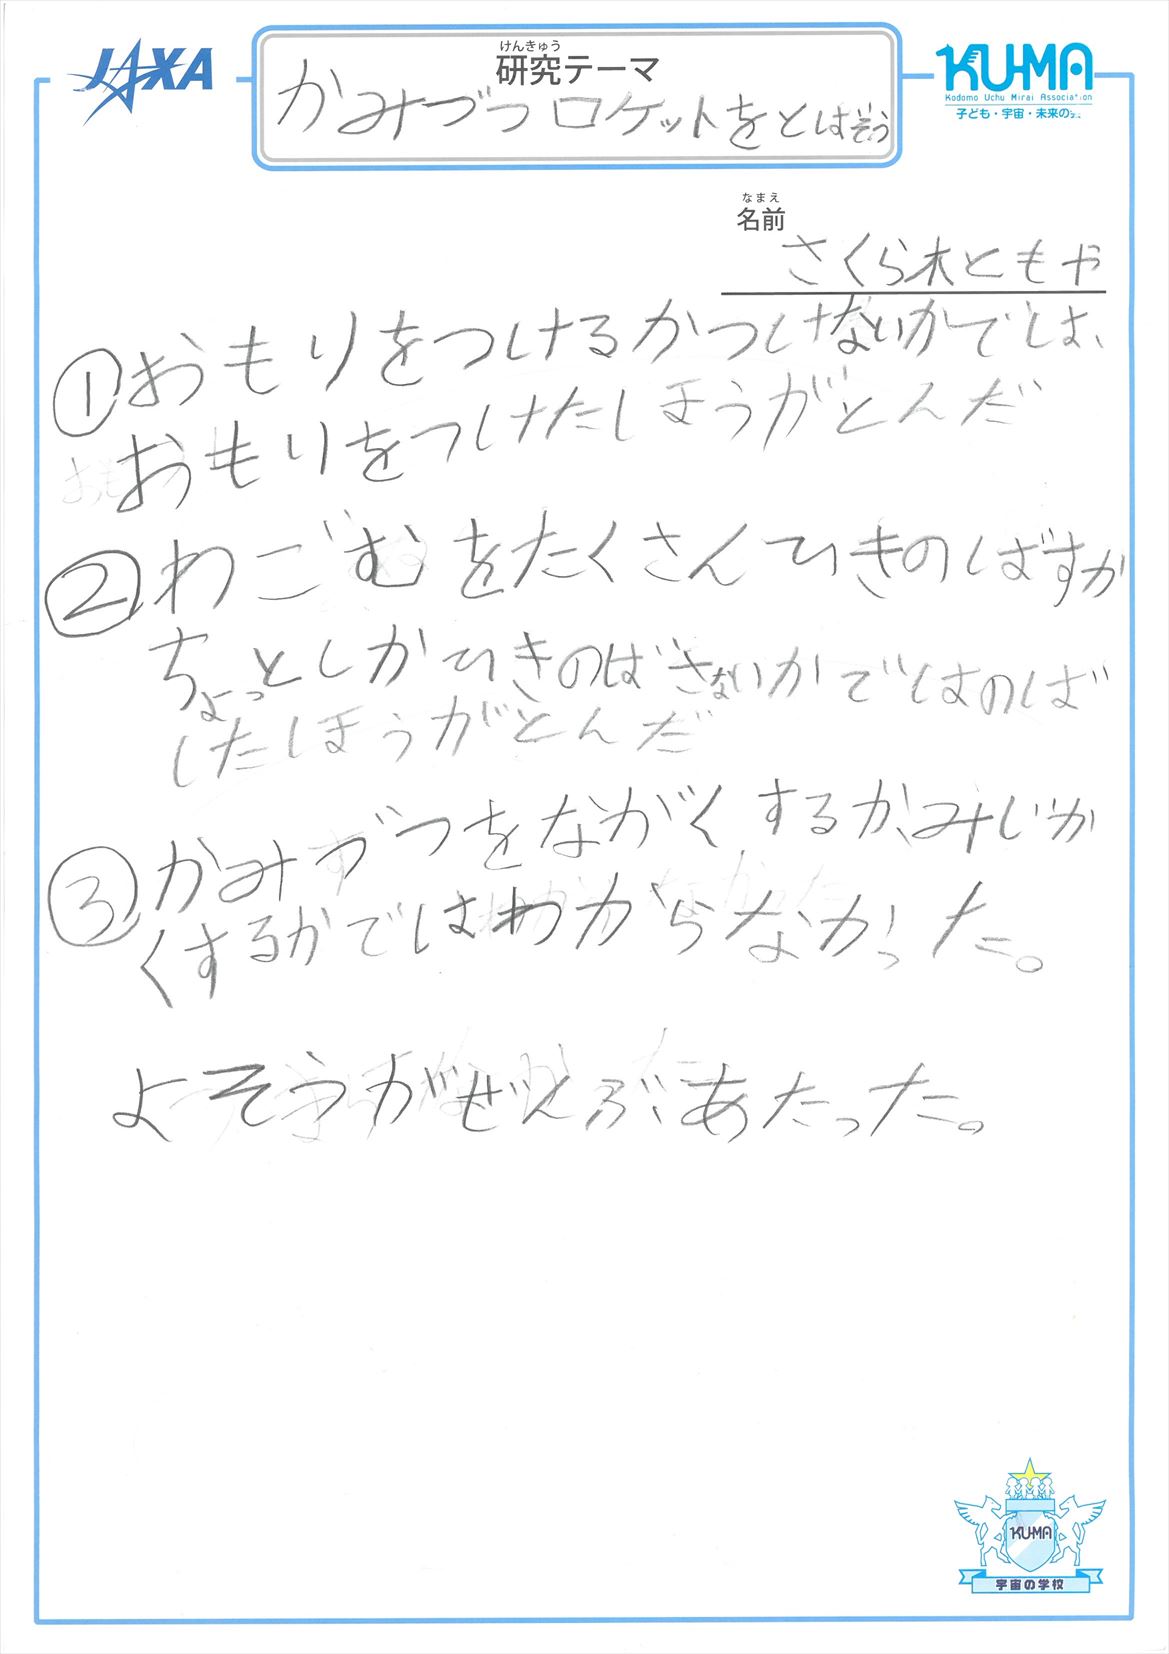 JAXA
けんきゅう
研究テーマ
かみづつロケットをとばそう
KU-MA
Kodomo Uchu Mirai Association
子ども・宇宙・未来の
なまえ
名前
さくら木ともや
①おもりをつけるかつけないかでは、
おもりをつけたしほうがとんだ
②わごむをたくさんひきのばすか
ちょっとしかひきのばさないかではのば
したほうがとんだ
③かみづつをながくするかみじか
くするかではわからなかった。
よそうがぜんぶあたった。
KU-MA
宇宙の学校